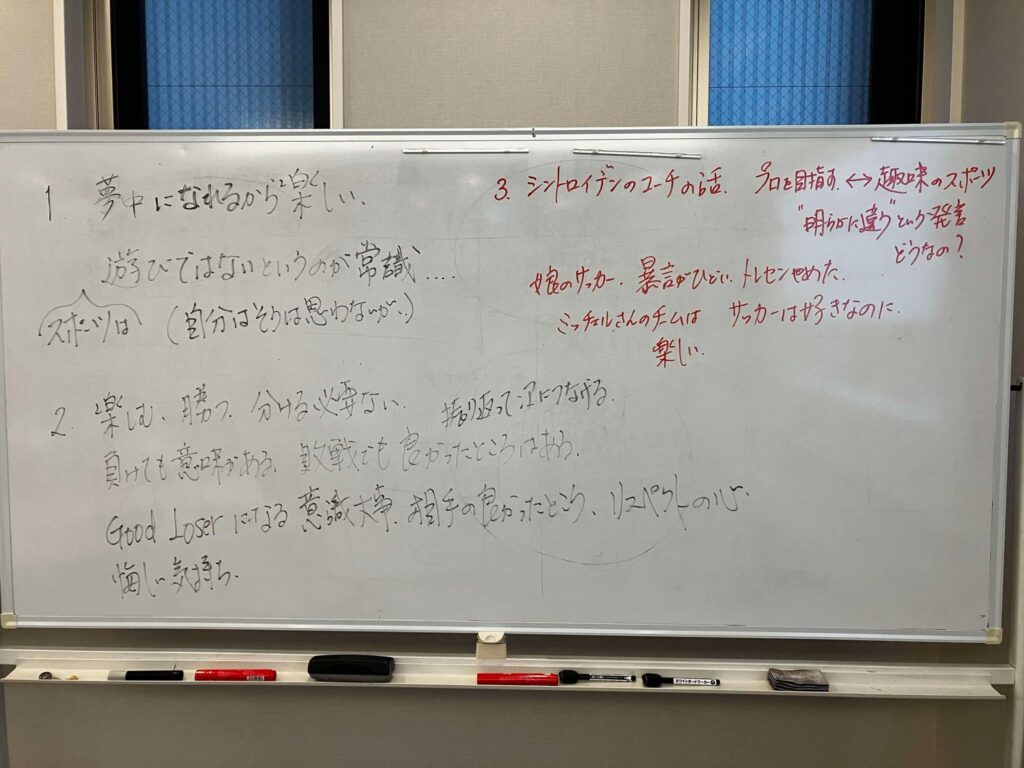 1 夢中になれるから楽しい、
遊びではないというのが常識....
スポーツは (自分はそうは思わないが。)
2. 楽しむ、勝つ、分ける必要ない、 振り返って次につなげる。
負けても意味がある、敗戦でも良かったところはある。
Good Loserになる意識大事、相手の良かったところ、リスペクトの心、
悔しい気持ち、
3. シントロイデンのコーチの話、 プロを目指す ↔ 趣味のスポーツ
"明らかに違う"という発言
どうなの?
娘のサッカー、暴言がひどい、トレセンやめた、
ミッチェルさんのチームは サッカーは好きなのに、
楽しい、
ホワイトボードマーカー